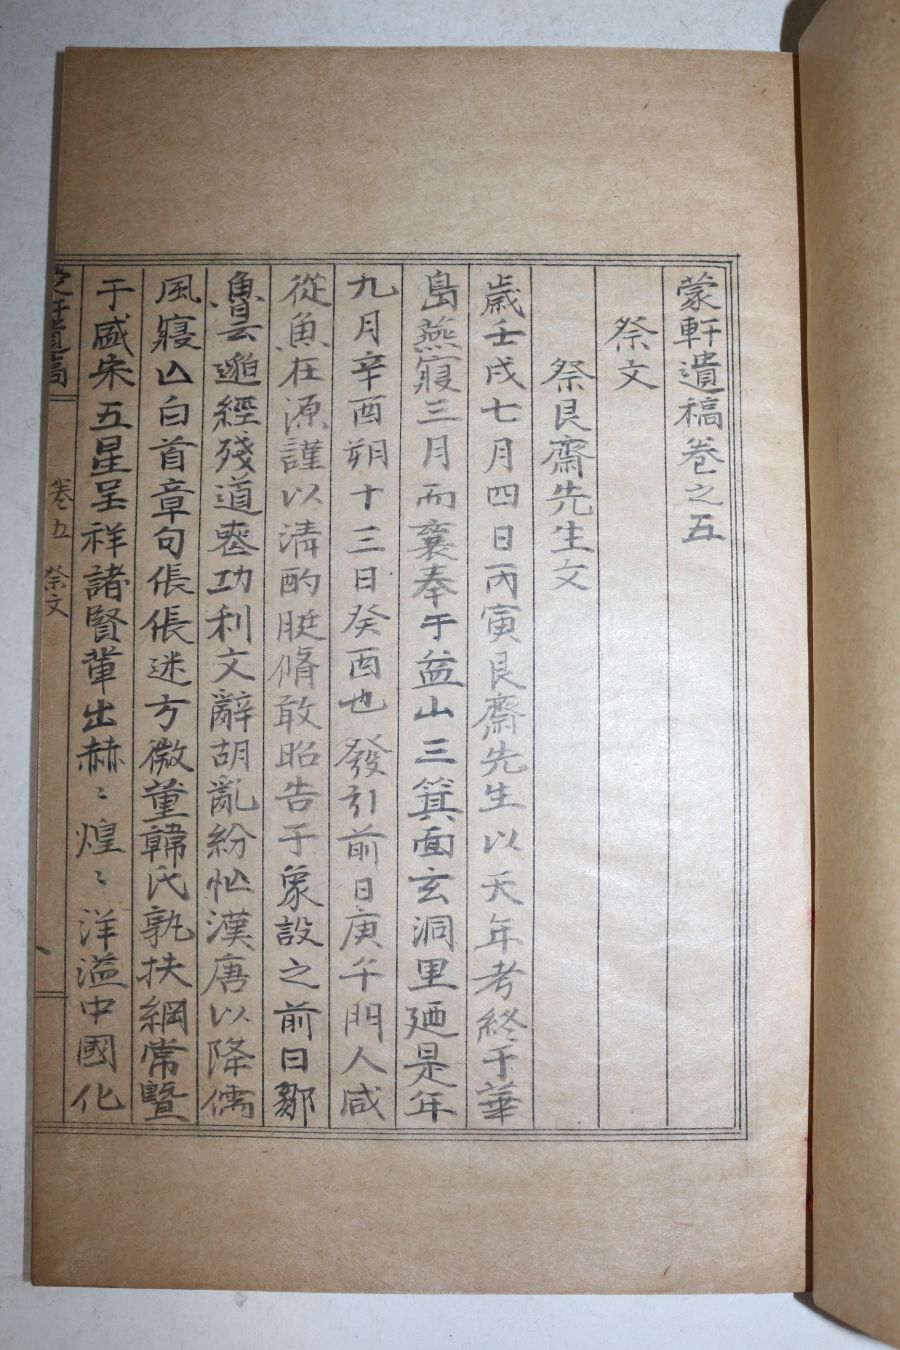 蒙軒遺稿卷之五
祭文
祭艮齋先生文
歲壬戌七月四日丙寅艮齋先生以天年考終于華
島燕寢三月而襄奉于益山三箕面玄洞里廼是年
九月辛酉朔十三日癸酉也發引前日庚午門人咸
從魚在源謹以清酌脡脩敢昭告于象設之前曰鄒
魯云邈經殘道喪功利文辭胡亂紛怭漢唐以降儒
風寢亡白首章句倀倀迷方微董韓氏孰扶綱常曁
于盛宋五星呈祥諸賢輩出赫〻煌〻洋溢中國化
卷五 祭文